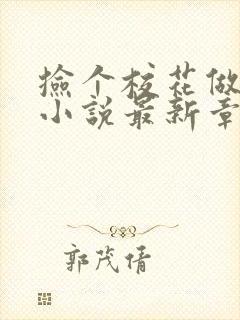 捡个校花做
小说最新章
郭茂倩